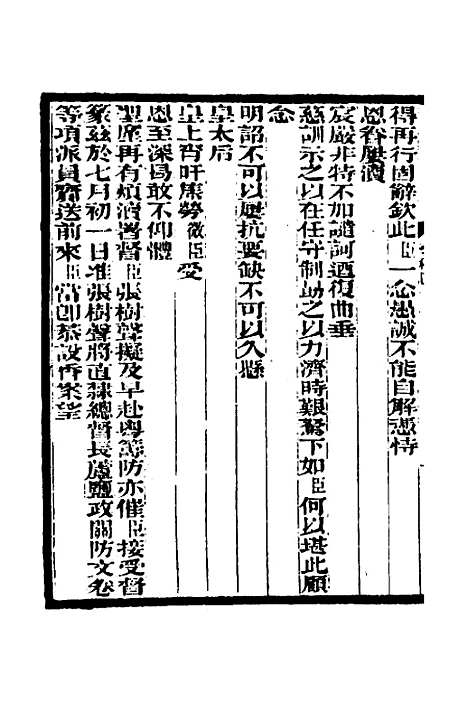 得再行固辭欽此臣一念愚誠不能自解憑恃
恩眷屢瀆
宸嚴非特不加譴訶迺復曲垂
慈訓示之以在任守制勖之以力濟時艱駑下如臣何以堪此顧
念
明詔不可以屢抗要缺不可以久懸
皇太后
皇上宵旰焦勞微臣受
恩至深曷敢不仰體
聖廑再有煩瀆署督臣張樹聲擬及早赴粵籌防亦催臣接受督
篆茲於七月初一日准張樹聲將直隸總督長蘆鹽政關防文卷
等項派員齎送前來臣當即恭設香案望